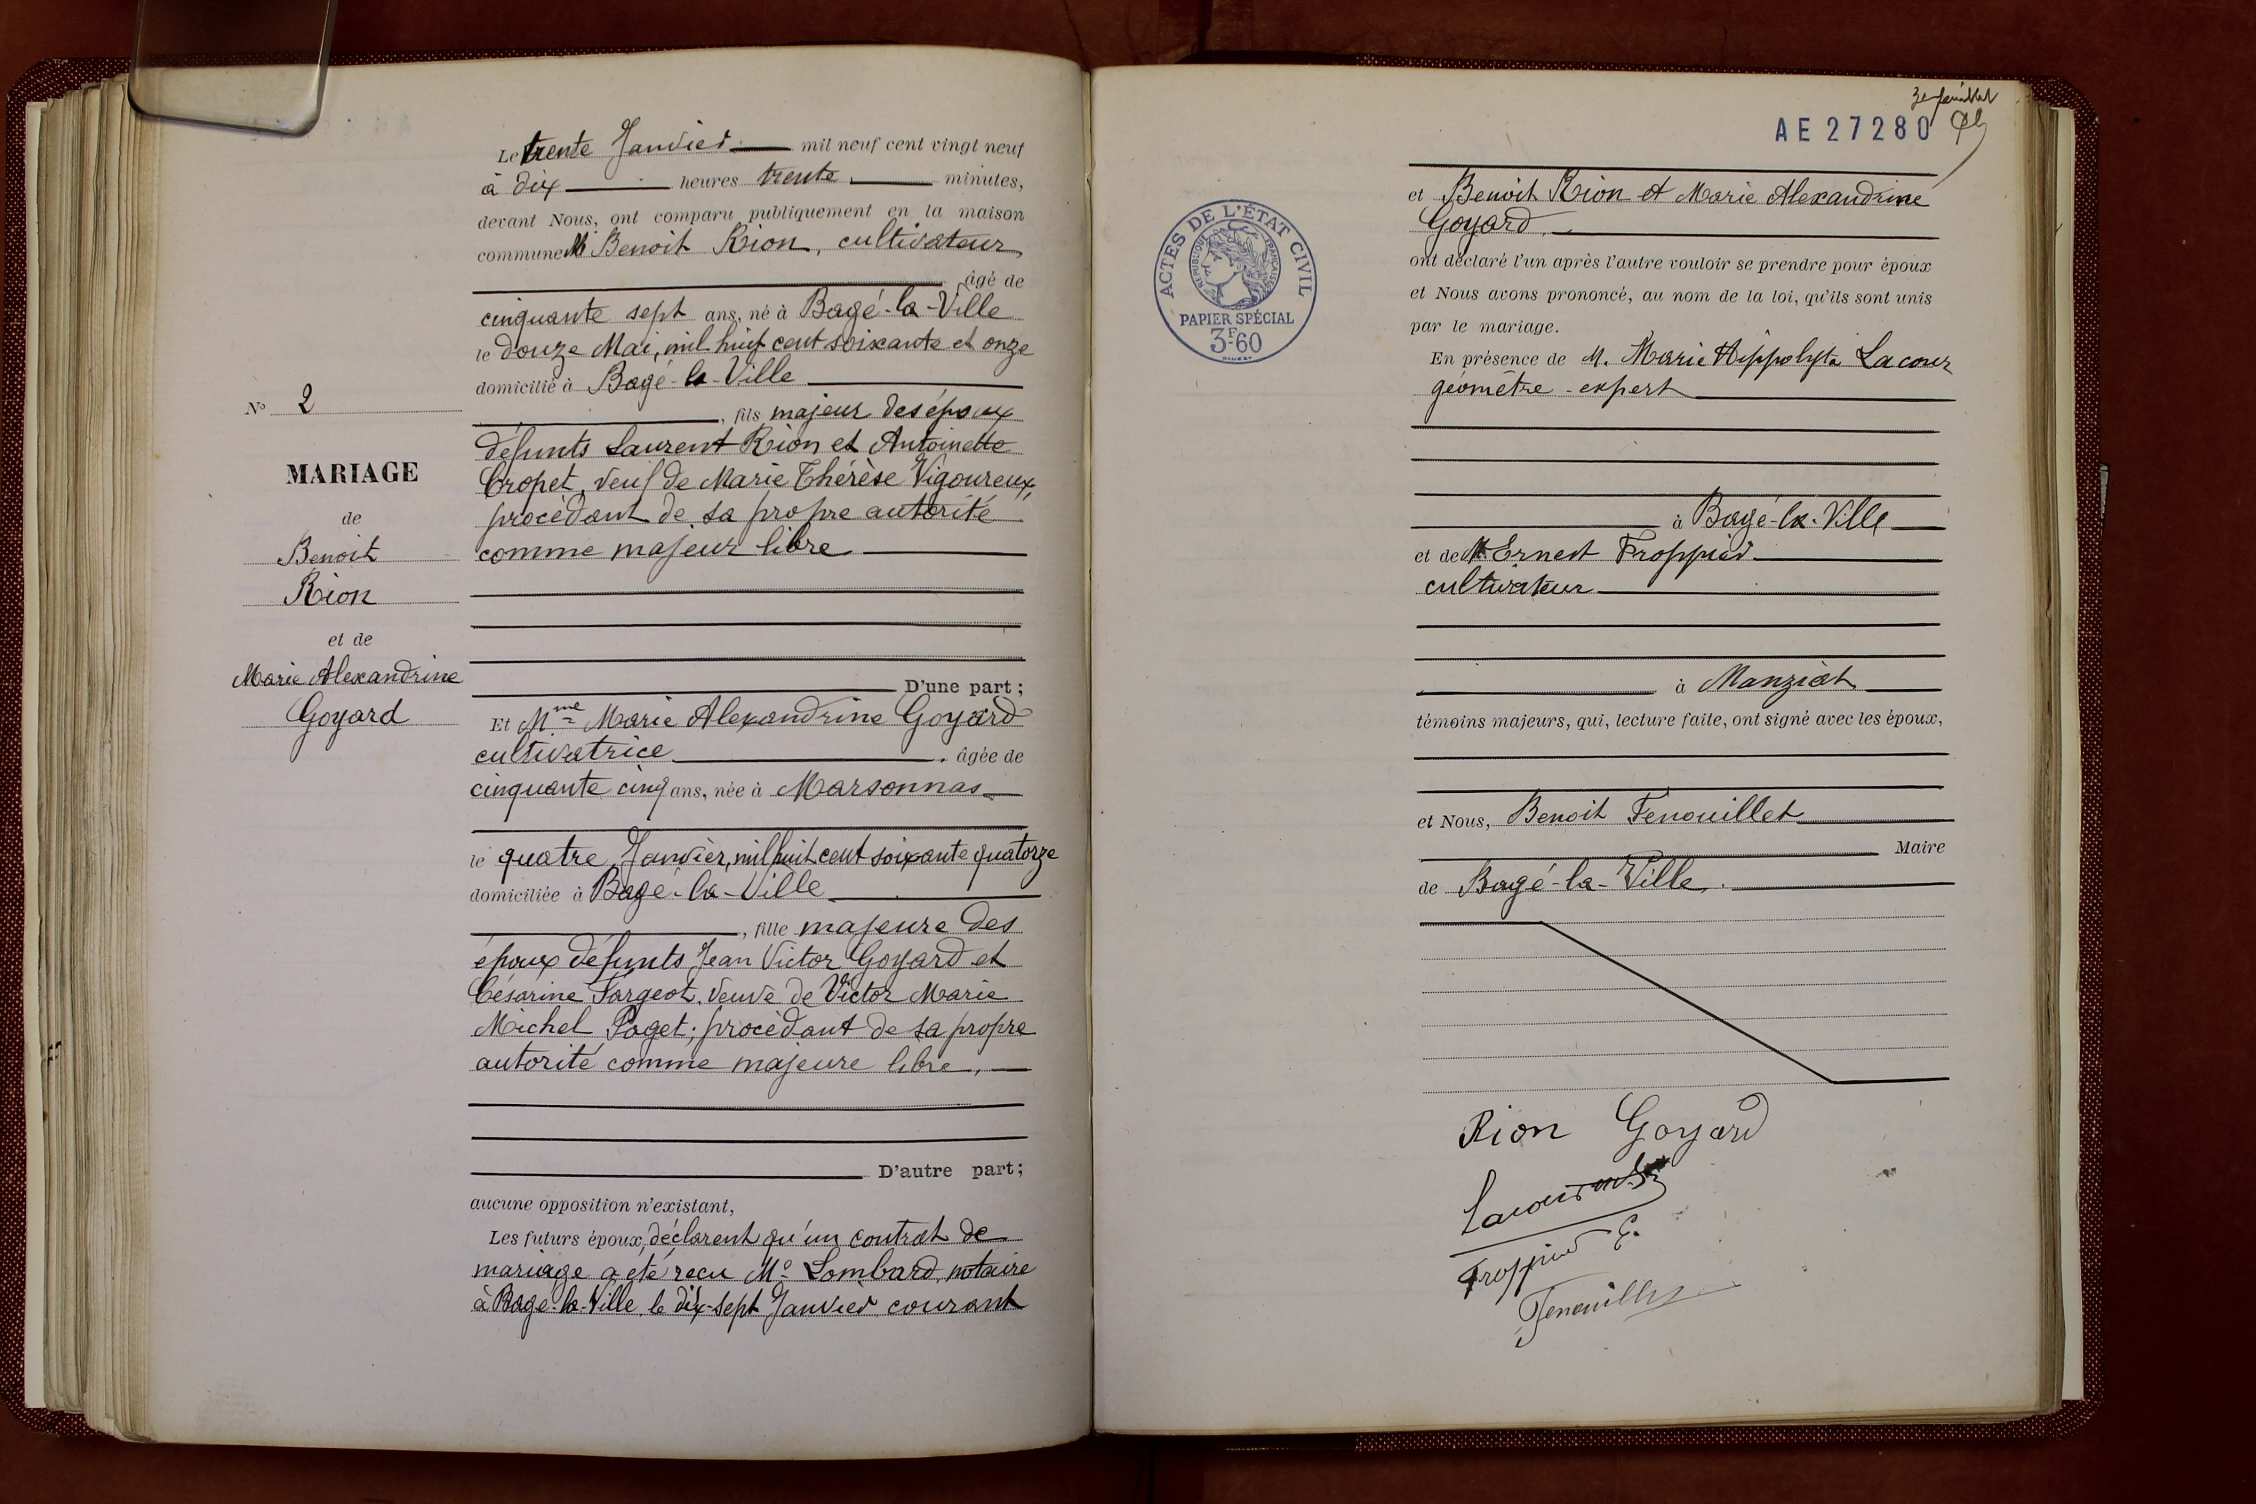 N° 2
MARIAGE
de
Benoit
Rion
et de
Marie Alexandrine
Goyard
Le trente Janvier mil neuf cent vingt neuf
à dix heures trente minutes,
devant Nous, ont comparu publiquement en la maison
commune M Benoit Rion, cultivateur
âgé de
cinquante sept ans, né à Bagé-la-Ville
le douze Mai, mil huit cent soixante et onze
domicilié à Bagé-la-Ville
, fils majeur des époux
défunts Laurent Rion et Antoinette
Cropet, veuf de Marie Thérèse Vigoureux,
procédant de sa propre autorité
comme majeur libre
D'une part;
Et Mme Marie Alexandrine Goyard
cultivatrice, âgée de
cinquante cinq ans, née à Marsonnas
le quatre Janvier, mil huit cent soixante quatorze
domiciliée à Bagé-la-Ville
, fille majeure des
époux défunts Jean Victor Goyard et
Césarine Fargeot, veuve de Victor Marie
Michel Paget; procédant de sa propre
autorité comme majeure libre,
D'autre part;
aucune opposition n'existant,
Les futurs époux, déclarent qu'un contrat de
mariage a été reçu Me Lombard, notaire
à Bagé-la-Ville, le dix-sept Janvier courant
3e feuillet
AE 27280
ACTES DE L'ÉTAT CIVIL
RÉPUBLIQUE FRANÇAISE
PAPIER SPÉCIAL
3F60
et Benoit Rion et Marie Alexandrine
Goyard.
ont déclaré l'un après l'autre vouloir se prendre pour époux
et Nous avons prononcé, au nom de la loi, qu'ils sont unis
par le mariage.
En présence de M. Marie Hippolyte Lacour
géomètre-expert
à Bagé-la-Ville
et de M. Ernest Froppier
cultivateur
à Manziat
témoins majeurs, qui, lecture faite, ont signé avec les époux,
et Nous, Benoit Fenouillet
Maire
de Bagé-la-Ville.
Rion Goyard
Lacour
Froppier E.
Fenouillet